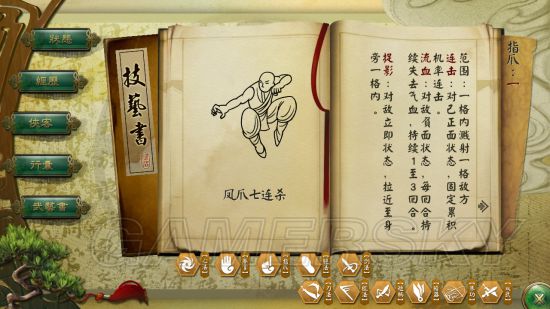 狀態
經歷
俠客
行囊
武藝書
技藝書
凤爪七连杀
指爪：一
范围：一格内溅射一格敌方
连击：对己正面状态，固定累积
机率连击。
流血：对敌负面状态，每回合持
续失去气血，持续1至3回合。
捉影：对敌立即状态，拉近至身
旁一格内。
GAMERSKY